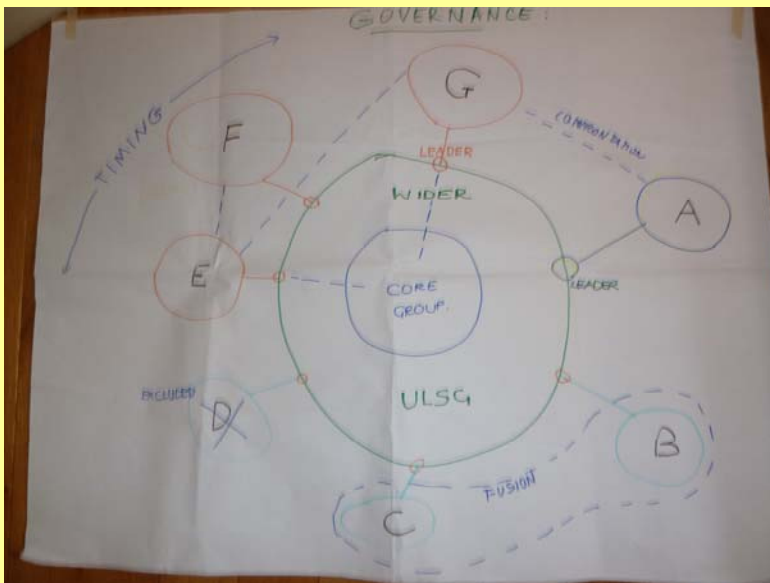 GOVERNANCE:
TIMING
F
G
LEADER
COMMUNICATION
WIDER
A
E
CORE
GROUP.
LEADER
EXCLUDED
D
ULSG
B
FUSION
C